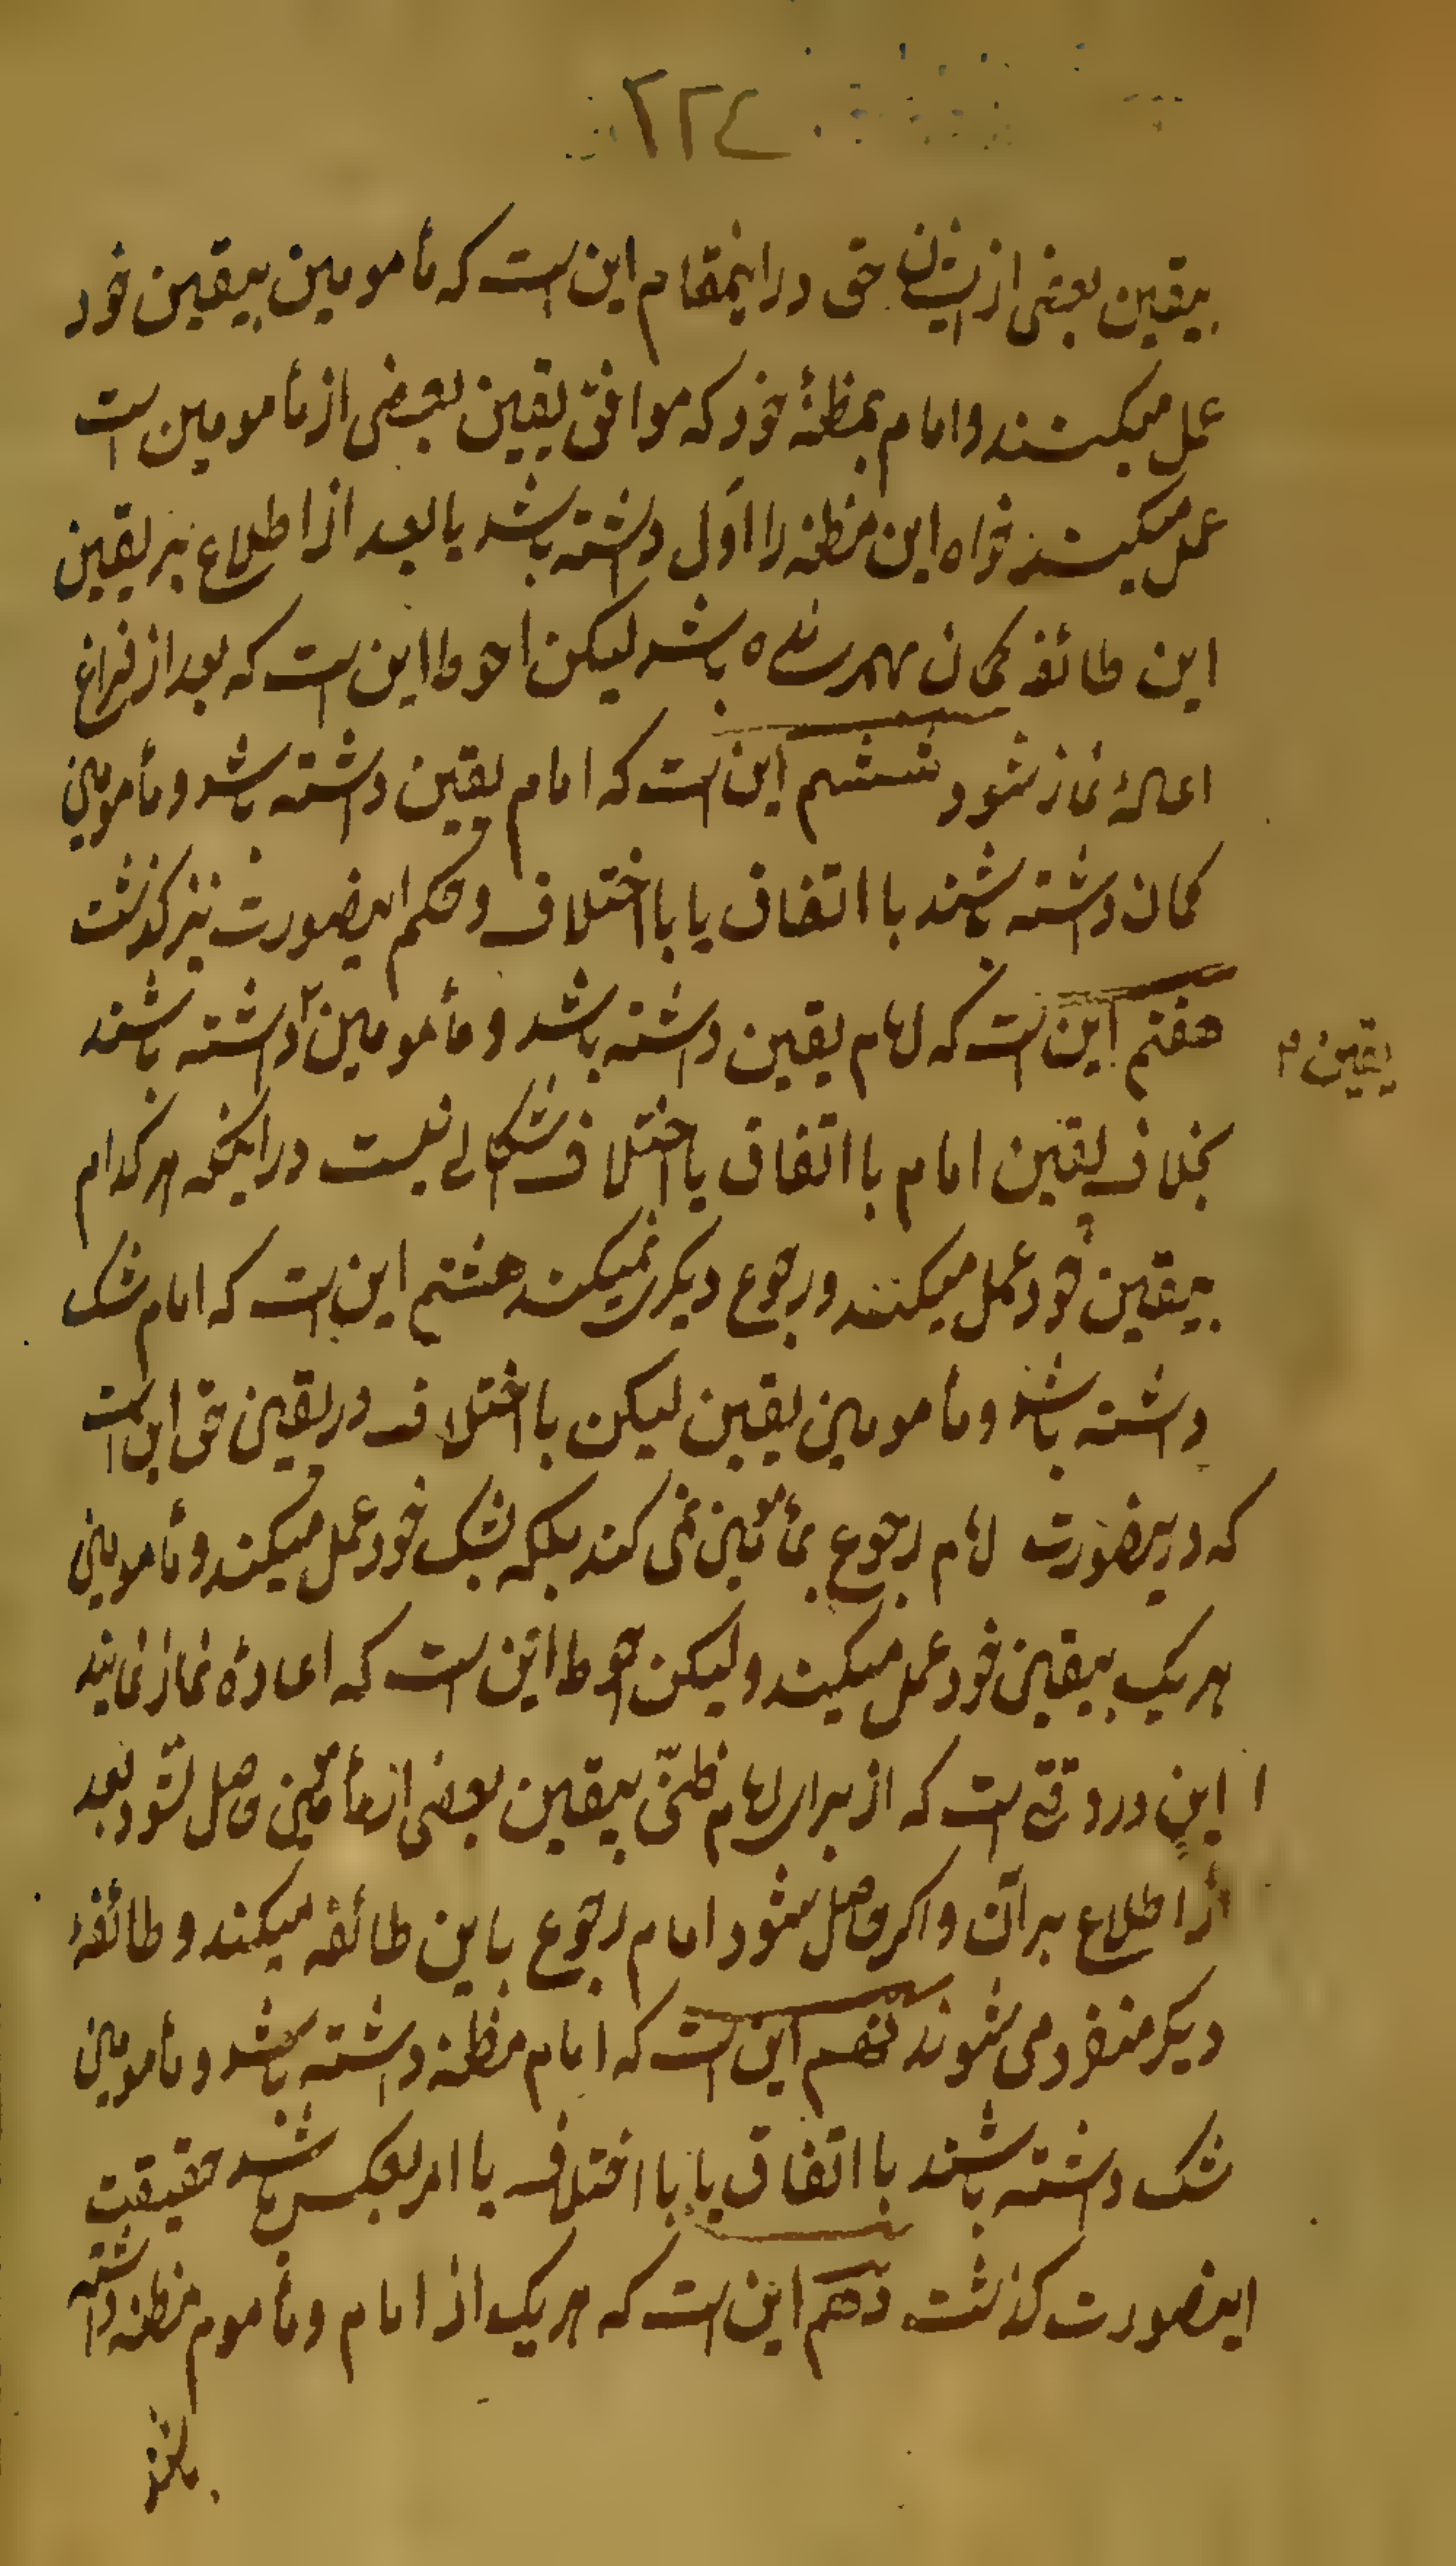 ٢٢٤
بیقین بعضی از ایشان حق در اینمقام این است که مأمومین بیقین خود
عمل میکنند و امام بمظنهٔ خود که موافق یقین بعضی از مأمومین است
عمل میکند خواه این مظنه را اول داشته باشد یا بعد از اطلاع بر یقین
این طائفه کمان بهمرسانده باشد لیکن احوط این است که بعد از فراغ
اعادهٔ نماز شود ششم این است که امام یقین داشته باشد و مأمومین
کمان داشته باشند با اتفاق یا با اختلاف و حکم اینصورت نیز کذشت
هفتم این است که امام یقین داشته باشد و مأمومین ۲ داشته باشند
یقین م
بخلاف یقین امام با اتفاق یا اختلاف اشکالی نیست در اینکه هر کدام
بیقین خود عمل میکنند و رجوع دیکری نمیکند هشتم این است که امام شک
داشته باشد و مأمومین یقین لیکن با اختلاف در یقین حق این است
که در اینصورت امام رجوع بمأمومین نمی کند بلکه بشک خود عمل میکند و مأمومین
هر یک بیقین خود عمل میکنند ولیکن احوط این است که اعادهٔ نماز نمایند
ا این در وقتی است که از برای امام ظنی بیقین بعضی از مأمومین حاصل نشود بعد
از اطلاع بر آن و اکر حاصل شود امام رجوع باین طائفه میکند و طائفهٔ
دیکر منفرد می شوند نهم این است که امام مظنه داشته باشد و مأمومین
شک داشته باشند با اتفاق یا با اختلاف یا امر بعکس باشد حقیقت
اینصورت کذشت دهم این است که هر یک از امام و مأموم مظنه داشته
باشند